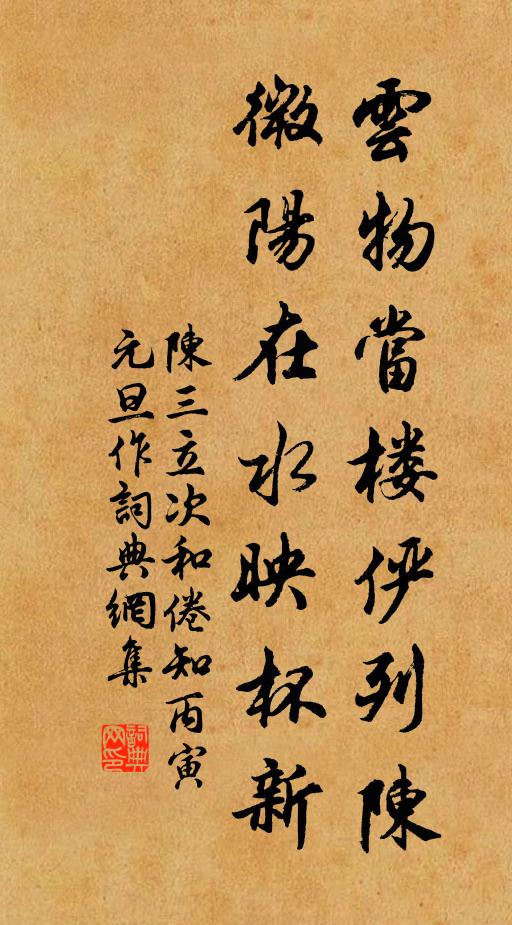 雲物當楼俨列陳
微陽在水映杯新
陳三立次和倦知丙寅
元旦作詞典網集
詞典网印